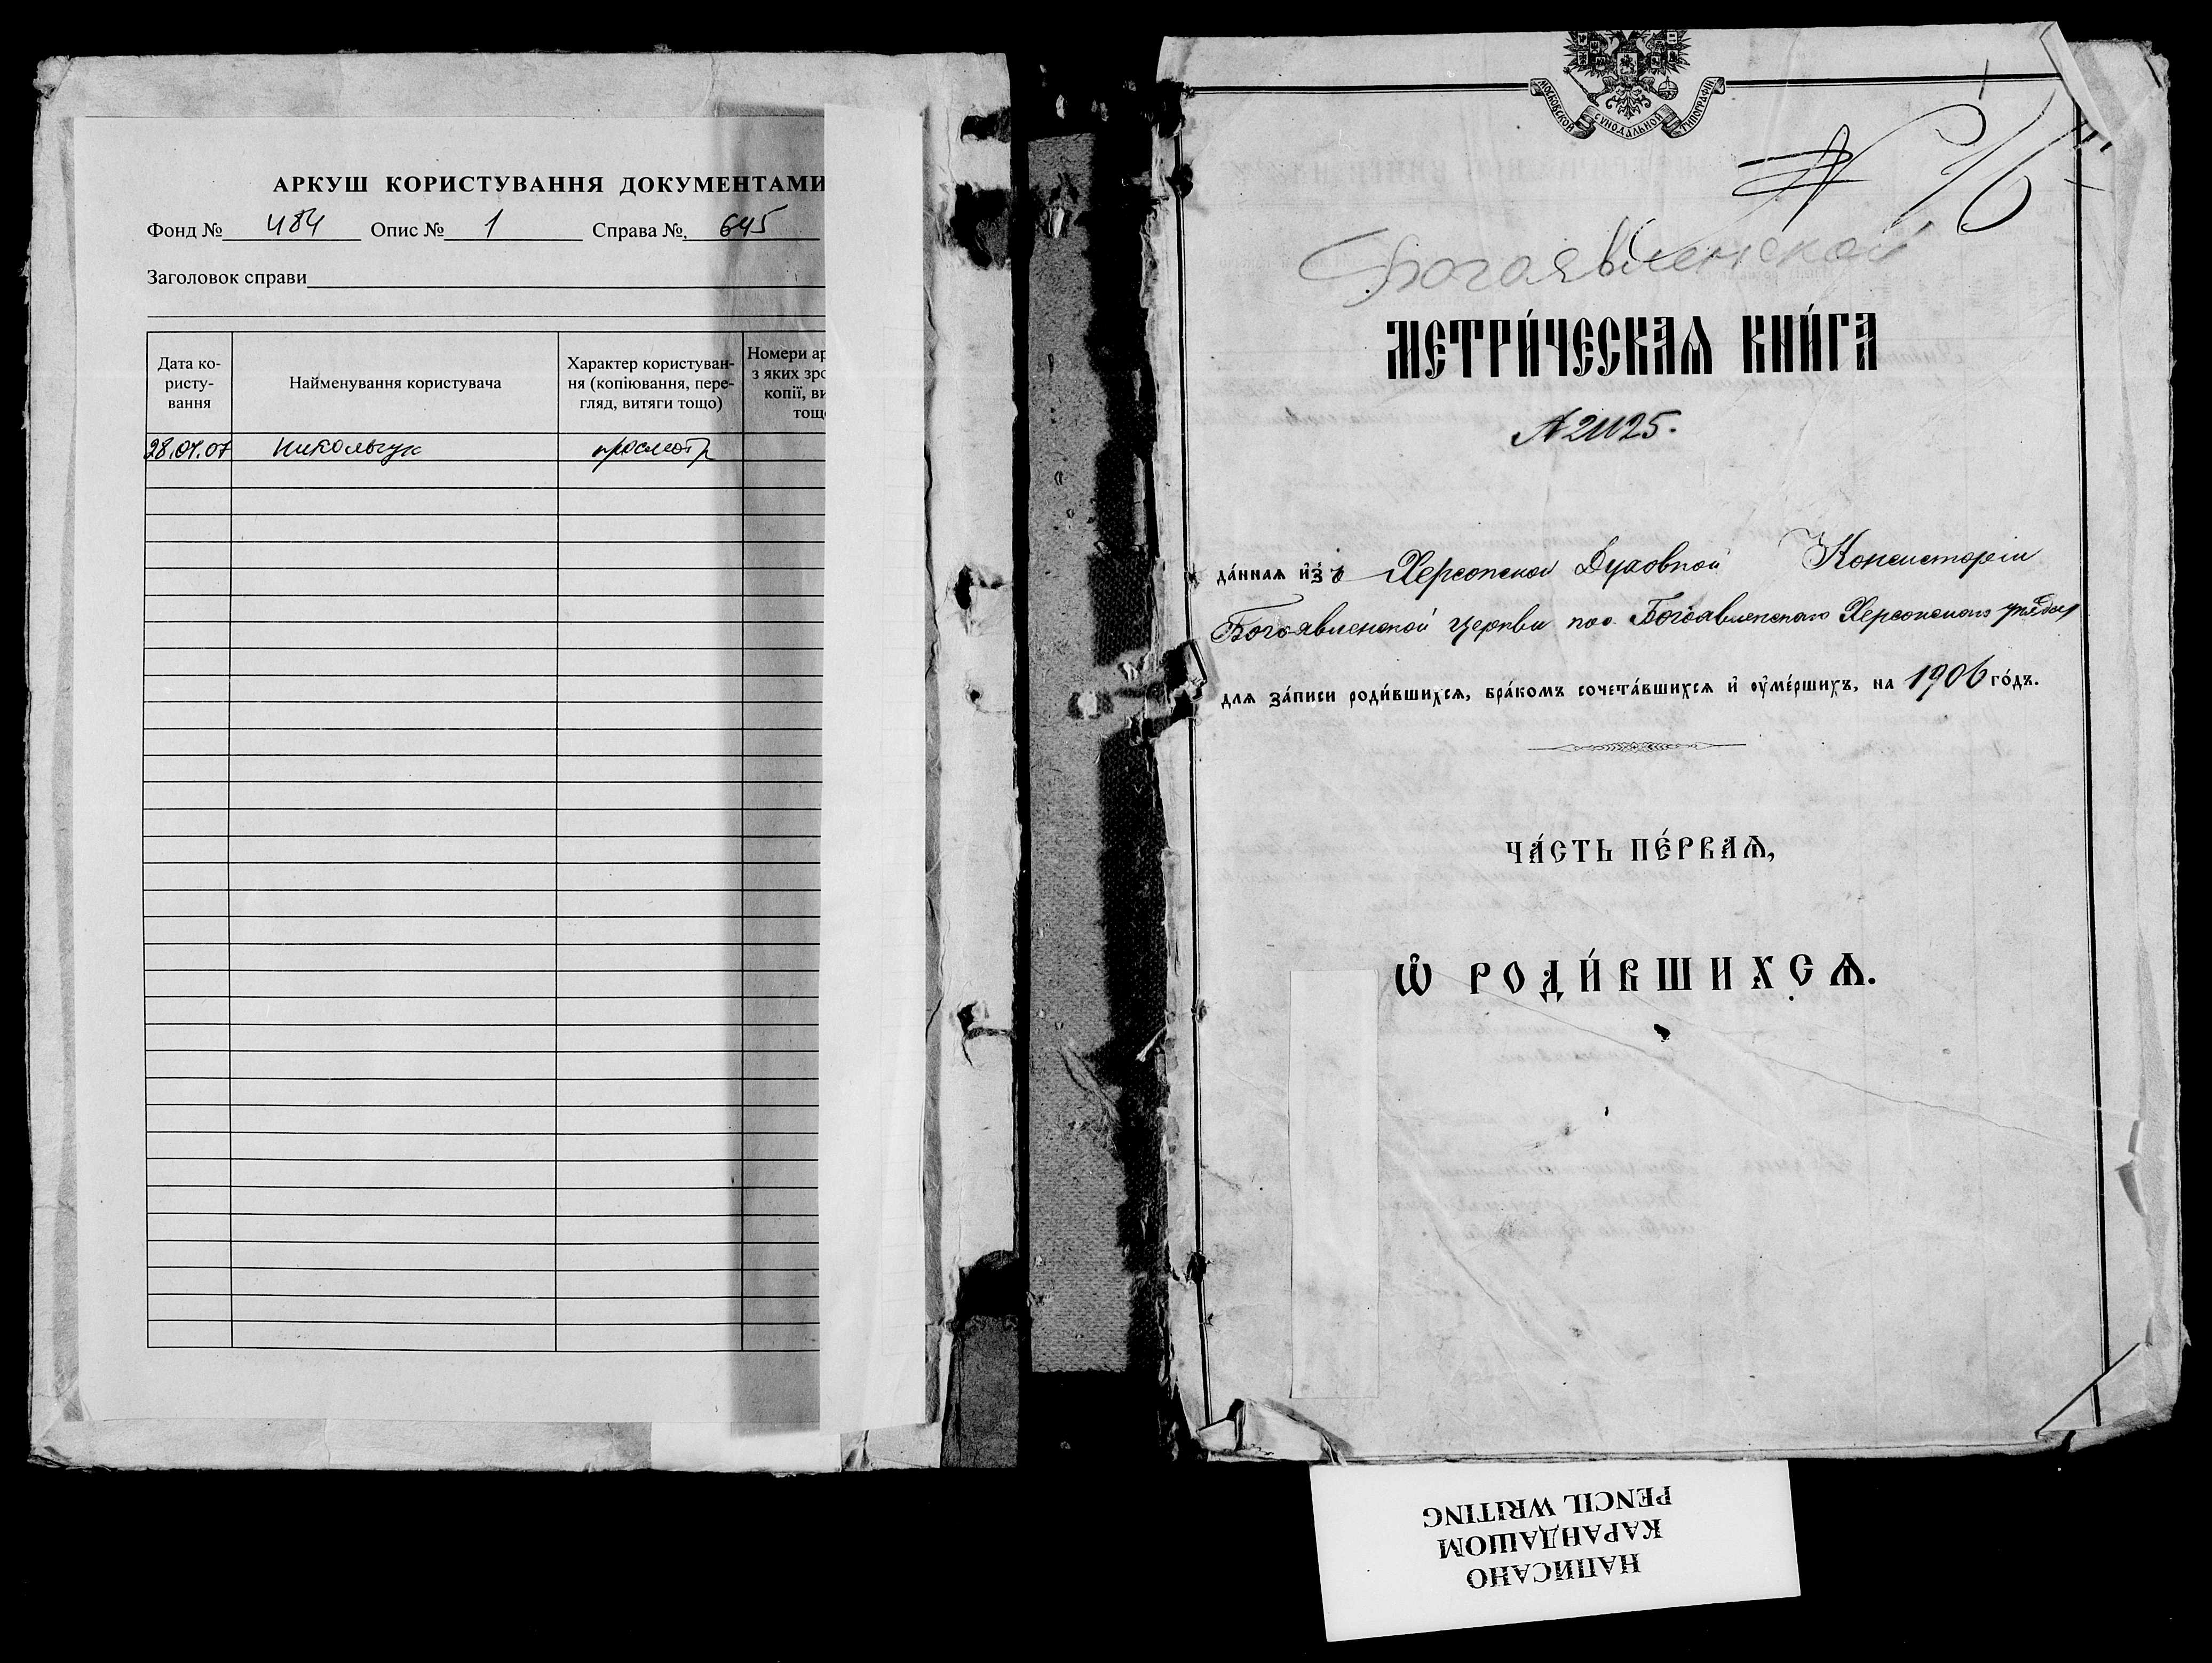 АРКУШ КОРИСТУВАННЯ ДОКУМЕНТАМИ
Фонд № 484 Опис № 1 Справа № 645
Заголовок справи
Дата ко-
ристу-
вання
Найменування користувача
Характер користуван-
ня (копіювання, пере-
гляд, витяги тощо)
Номери ар
з яких зро
копії, ви
тощ
28.04.07 просмотр
МОСКОВСКОЙ СѴНОДАЛЬНОЙ ТИПОГРАФІИ
Богоявленской
МЕТРИ́ЧЕСКАѦ КНИ́ГА
№ 21125.
да́нная и҆зъ Херсонской Духовной Консисторіи
Богоявленской церкви пос. Богоявленскаго Херсонскаго уѣзда
для за́писи роди́вшихсѧ, бра́комъ сочета́вшихсѧ и҆ оу҆ме́ршихъ, на 1906 го́дъ.
ЧА́СТЬ ПЕ́РВАѦ,
Ѡ҆ РОДИ́ВШИХСѦ.
НАПИСАНО
КАРАНДАШОМ
PENCIL WRITING